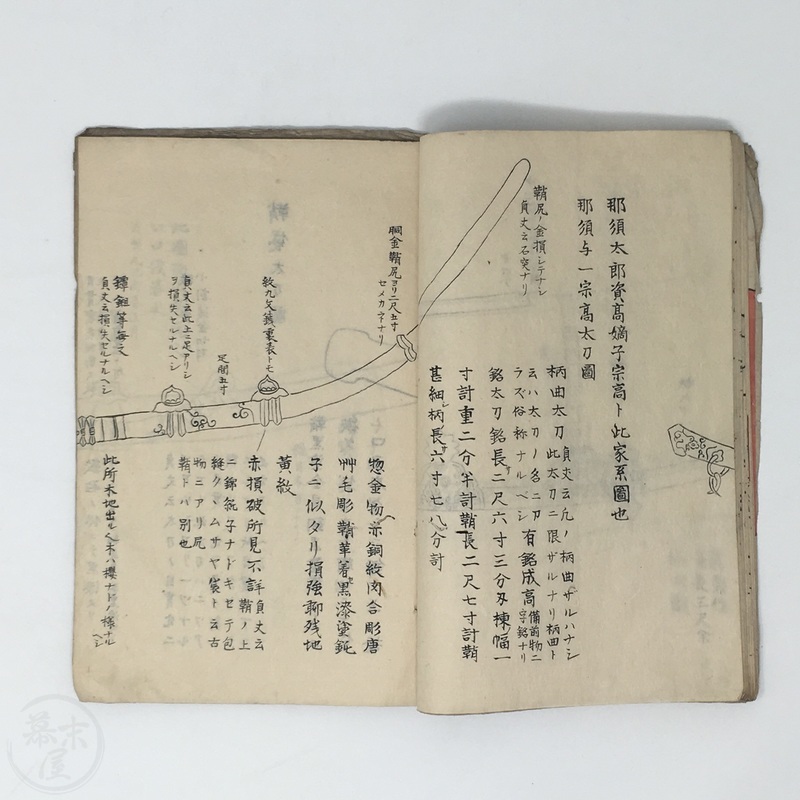 那須太郎資高嫡子宗高ト此家系圖也
那須与一宗高太刀圖
鞘尻ノ金損シテナシ
貞丈云石突ナリ
柄曲太刀
貞丈云凢ノ柄曲ザルハナシ
此太刀ニ限ザルナリ柄曲ト
云ハ太刀ノ名ニ刀
ラズ俗称ナルベシ
有銘成高
備前物ニ
字銘ナリ
銘太刀銘長二尺六寸三分刄棟幅一
寸計重二分半計鞘長二尺七寸計鞘
甚細シ柄長サ六寸七八分計
胴金鞘尻ヨリ二尺五寸
セメカネナリ
惣金物赤銅紋肉合彫唐
艸毛彫鞘革着黒漆塗鈍
子ニ似タリ損強聊残地
黄紋
赤損破所見不詳
貞丈云
鞘ノ上
ニ錦鈍子ナドキセテ包
縫クヽムサヤ袋ト云古
物ニアリ尻
鞘トハ別也
足間五寸
貞丈云此上ニ足アリシ
ヲ損失セルナルヘシ
鐔鉏等毎之
貞丈云損失セルナルヘシ
此所木地出ル
木ハ櫻ナドノ様ナル
ヘシ
幕末屋